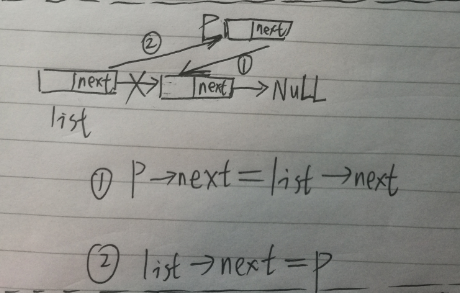 P next
②
①
next next → NULL
list
① P→next = list→next
② list→next = P